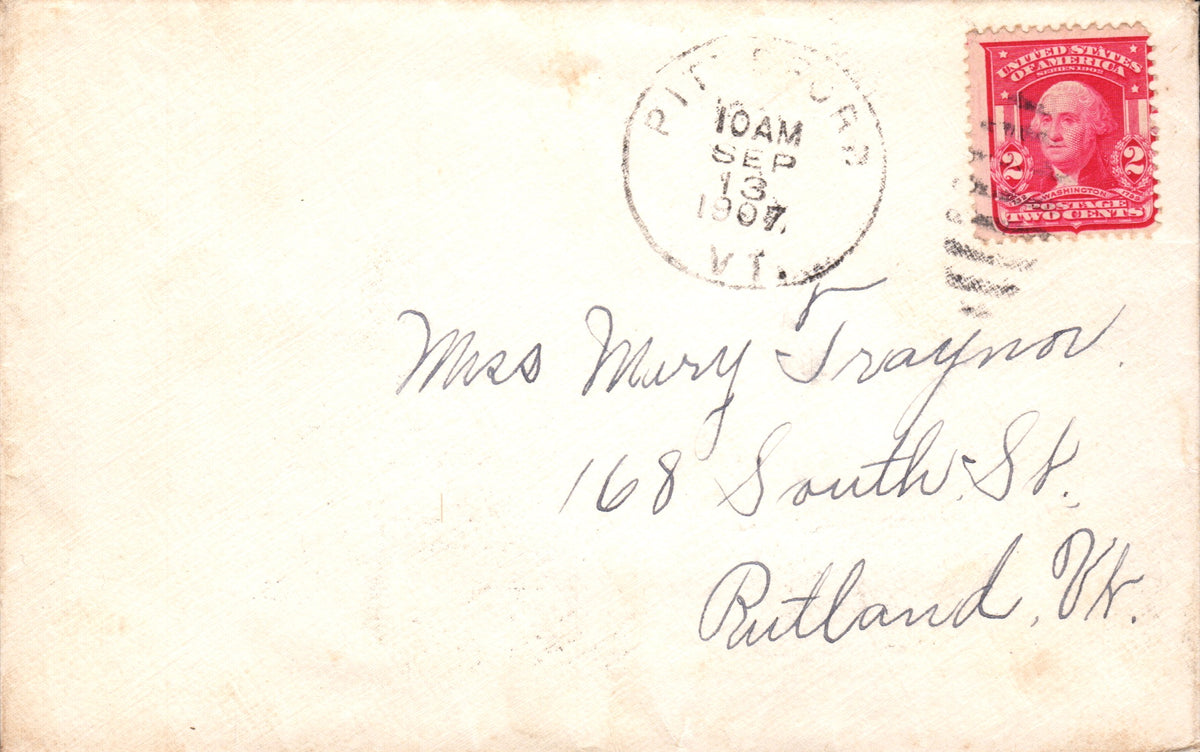 PITTSFORD
10AM
SEP
13
1907.
VT.
UNITED STATES
OF AMERICA
SERIES 1902
2 2
WASHINGTON
POSTAGE
TWO CENTS
Miss Mary Traynor.
168 South St.
Rutland, Vt.